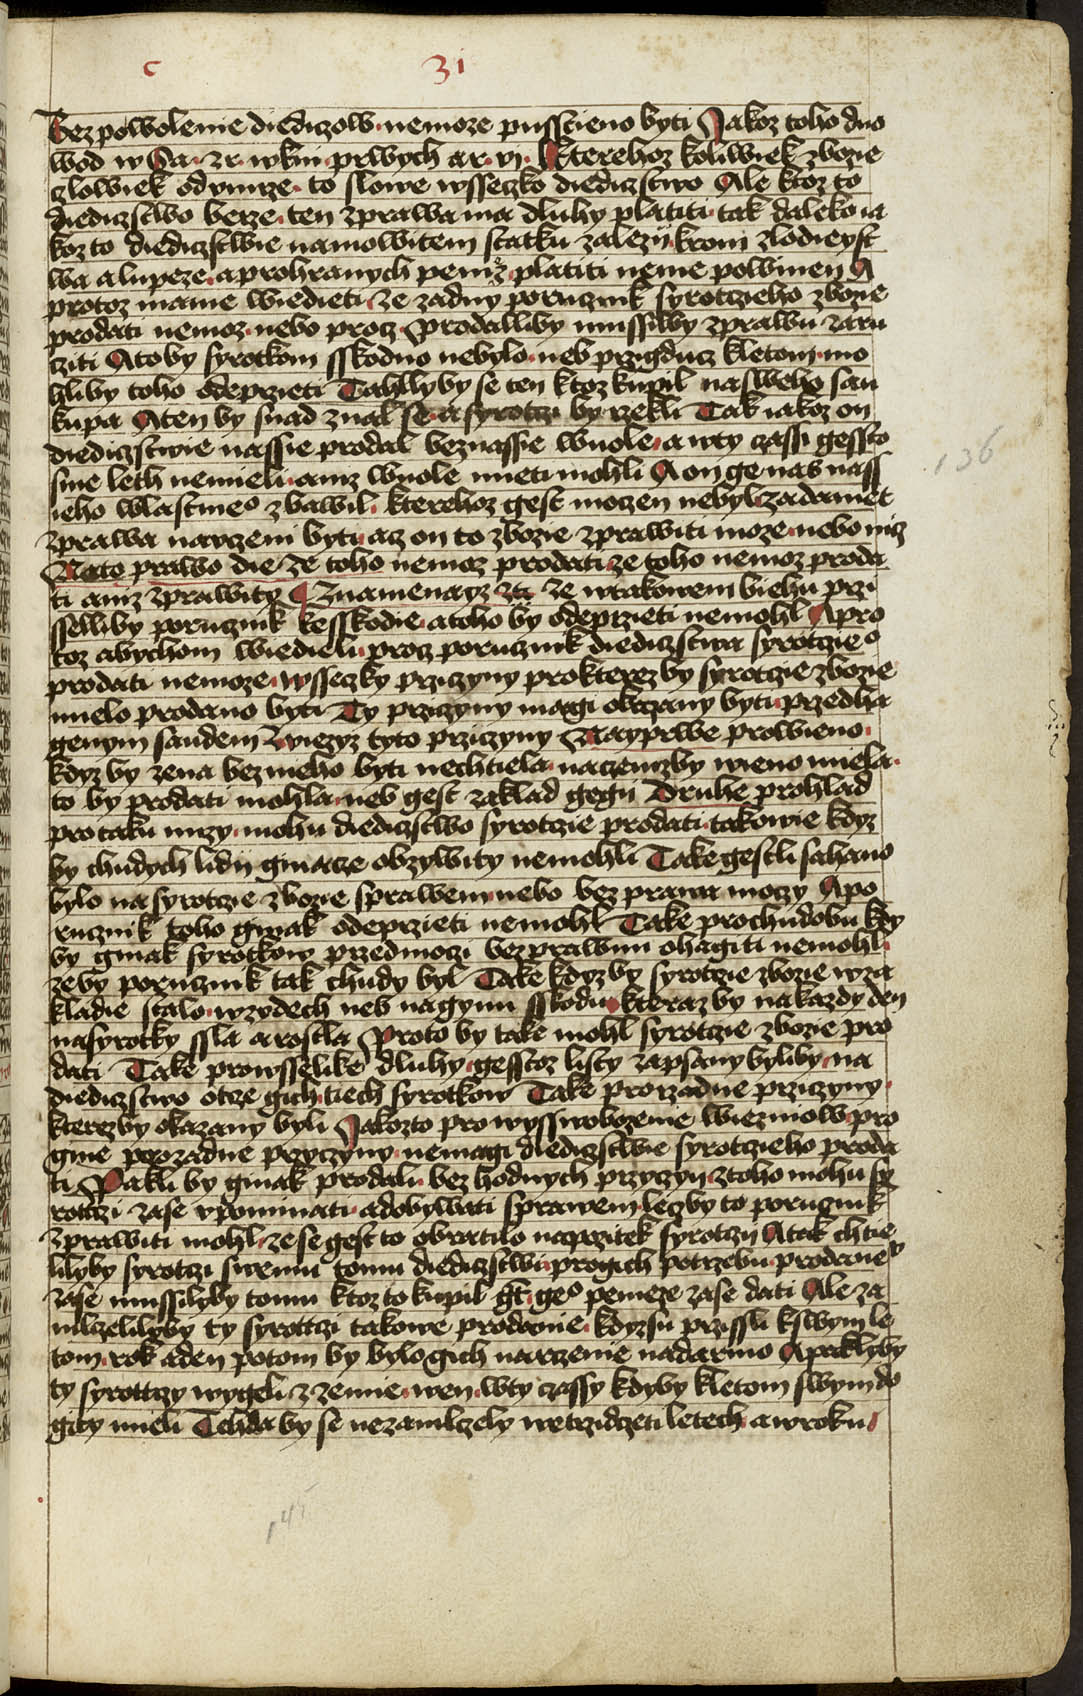 c 31
Bez powolenie diediczow nemoze pussczieno byti Jakoz toho duo
wod w Sa. zr. wkni prwych ar. vi. Kterehoz koliwiek zbozie
czlowiek odumrze. to slowe wsseczko diediczstwo Ale ktoz to
diediczstwo berze. ten zprawa ma dluhy platiti tak daleko ia
koz to diediczstwie na mowitem statku zalezij. krom zlodieyst
wa a lupeze. a prohranych peniez platiti nenie powinen A
protoz mame wiedieti ze zadny porucznik syrotczieho zbozie
prodati nemoz. nebo procz Prodalliby mussilby zprawu zaru
cziti A to by syrotkom sskodno nebylo. neb przigducz kletom mo
hliby toho odeprzieti Tahllyby se ten ktoz kupil na sweho sau
kupa A ten by snad znal se a syrotczi by rzekli Tak iakoz on
diediczstwie nassie prodal bez nassie wuole. a w ty czassi gessto
sme leth nemieli. aniz wuole mieti mohli A on ge nas nass
ieho wlastnieo zbawil. kterehoz gest moczen nebyl. zadamet
zprawa nauczeni byti acz on to zbozie zprawiti moze nebo nicz
Na to prawo die Ze toho nemoz prodati. ze toho nemoz proda
ti aniz zprawity Znamenayz ze wtakowem biehu przi
sselliby porucznik ke sskodie. a toho by odeprzieti nemohl A pro
toz abychom wiedieli procz porucznik diediczstwa syrotczieo
prodati nemoze wsseczky prziczyny pro kterez by syrotczie zbozie
mielo prodano byti Ty prziczyny magi okazany byti przed ha
genym saudem Zwiezyz tyto prziczyny Nayprwe pro wieno
kdyz by zena bez nieho byti nechtiela. naczemzby wieno miela.
to by prodati mohla. neb gest zaklad gegij Druhe pro hlad
pro taku nuzy. mohu diediczstwo syrotczie prodati. takowie kdyz
by chudych lidij ginacze obzywity nemohli Take gestli sahano
bylo na syrotczie zbozie sprawem. nebo bez prawa moczy A po
rucznik toho ginak odeprzieti nemohl Take pro chudobu kdy
by ginak syrotkow przed moczi bezprawnu ohagiti nemohl
zeby porucznik tak chudy byl Take kdyz by syrotczie zbozie w za
kladie stalo wzydech neb na gynu sskodu. kteraz by na kazdy den
na syrotky ssla a rostla Proto by take mohl syrotczie zbozie pro
dati Take pro wsselike dluhy. gesstoz listy zapsany byliby. na
diediczstwo otcze gich tiech syrotkow Take pro rzadne prziczyny
kterez by okazany byli Jakozto pro wysswobozenie wieznow pro
gine porzadne przyczyny nemagi diediczstwie syrotczieho proda
ti Pakli by ginak prodali. bez hodnych przyczyn z toho mohu sy
rottczi zase vpominati a dobywati sprawem lecz by to porucznik
zprawiti mohl. ze se gest to obratilo na pozitek syrotczij A tak chtie
lilyby syrotczi swemu tomu diediczstwi pro gich potrzebu prodane
zase mussilyby tomu ktoz to kupil geo penieze zase dati Ale za
milczelilyby ty syrottczi takowe prodanie. kdyz su przissli k swym le
tom. rok a den potom by bylo gich narczenie nadarmo A paklyby
ty syrottczy wygeli z zemie wen. w ty czassy kdyby kletom swym do
gity mieli Tehda by se nezamilczely w etrzidczeti letech a w roku
136
145